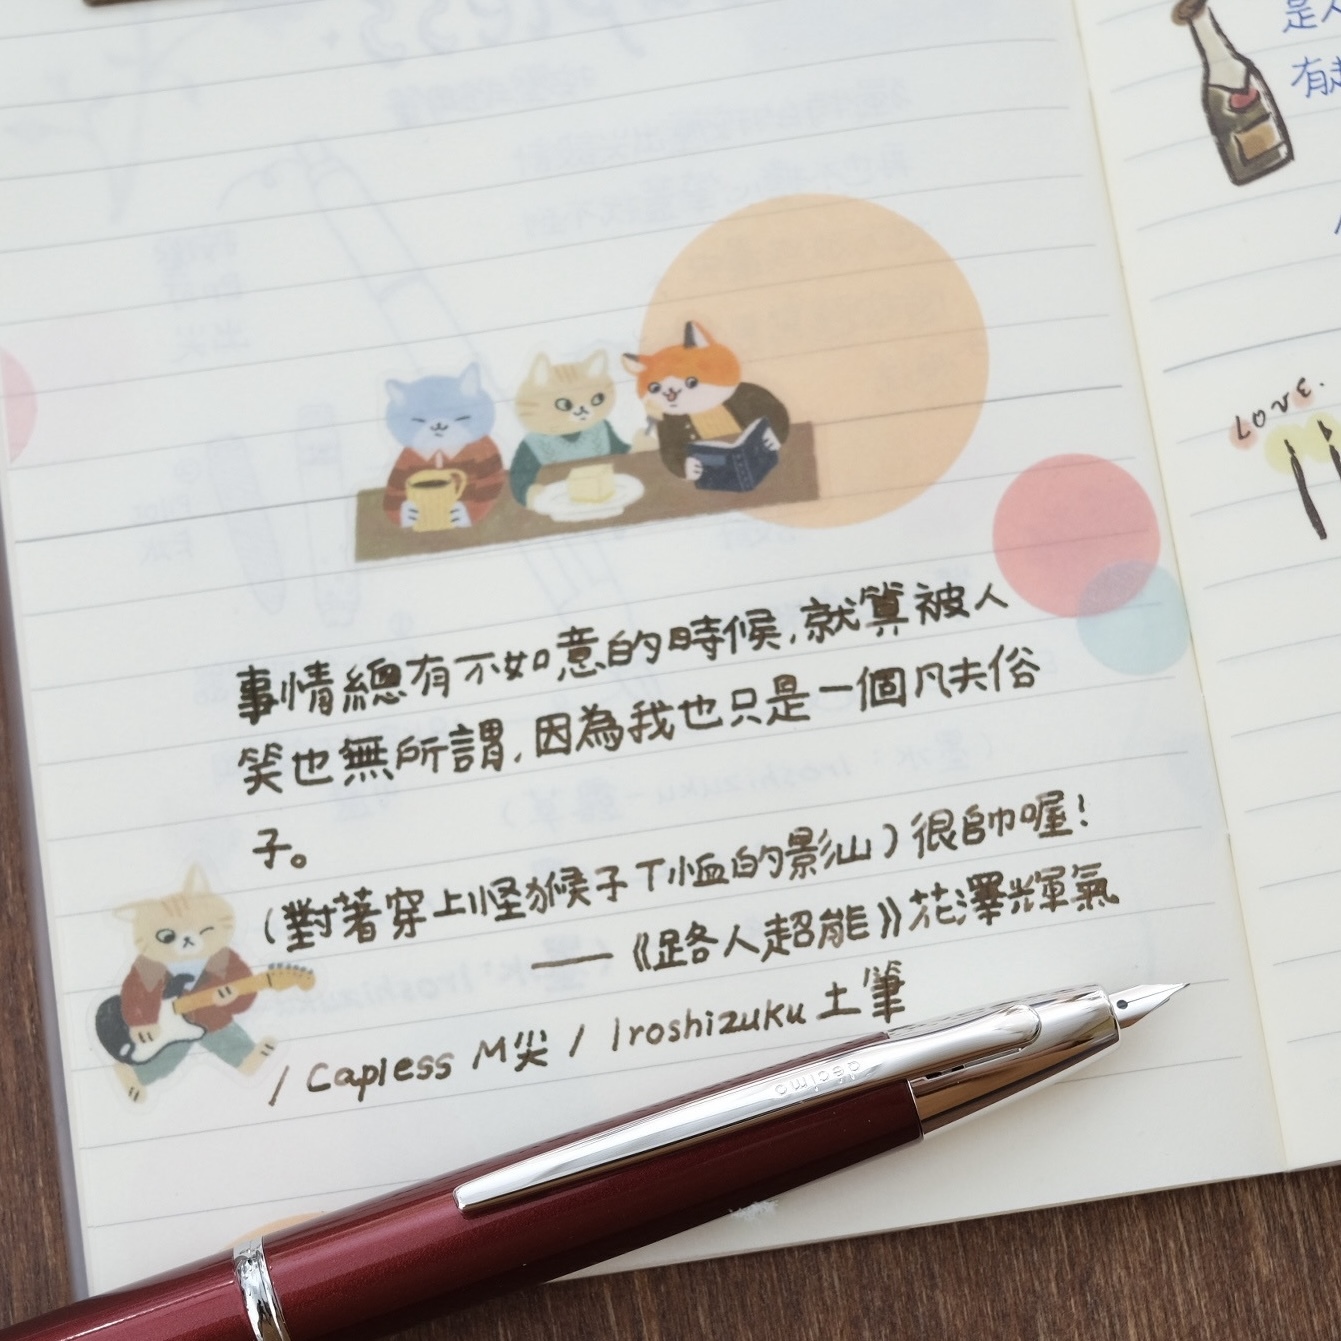 事情總有不如意的時候,就算被人
笑也無所謂,因為我也只是一個凡夫俗
子。
(對著穿上怪猴子T恤的影山)很帥喔!
——《路人超能》花澤輝氣
/ Capless M尖 / Iroshizuku 土筆
décimo
Love.